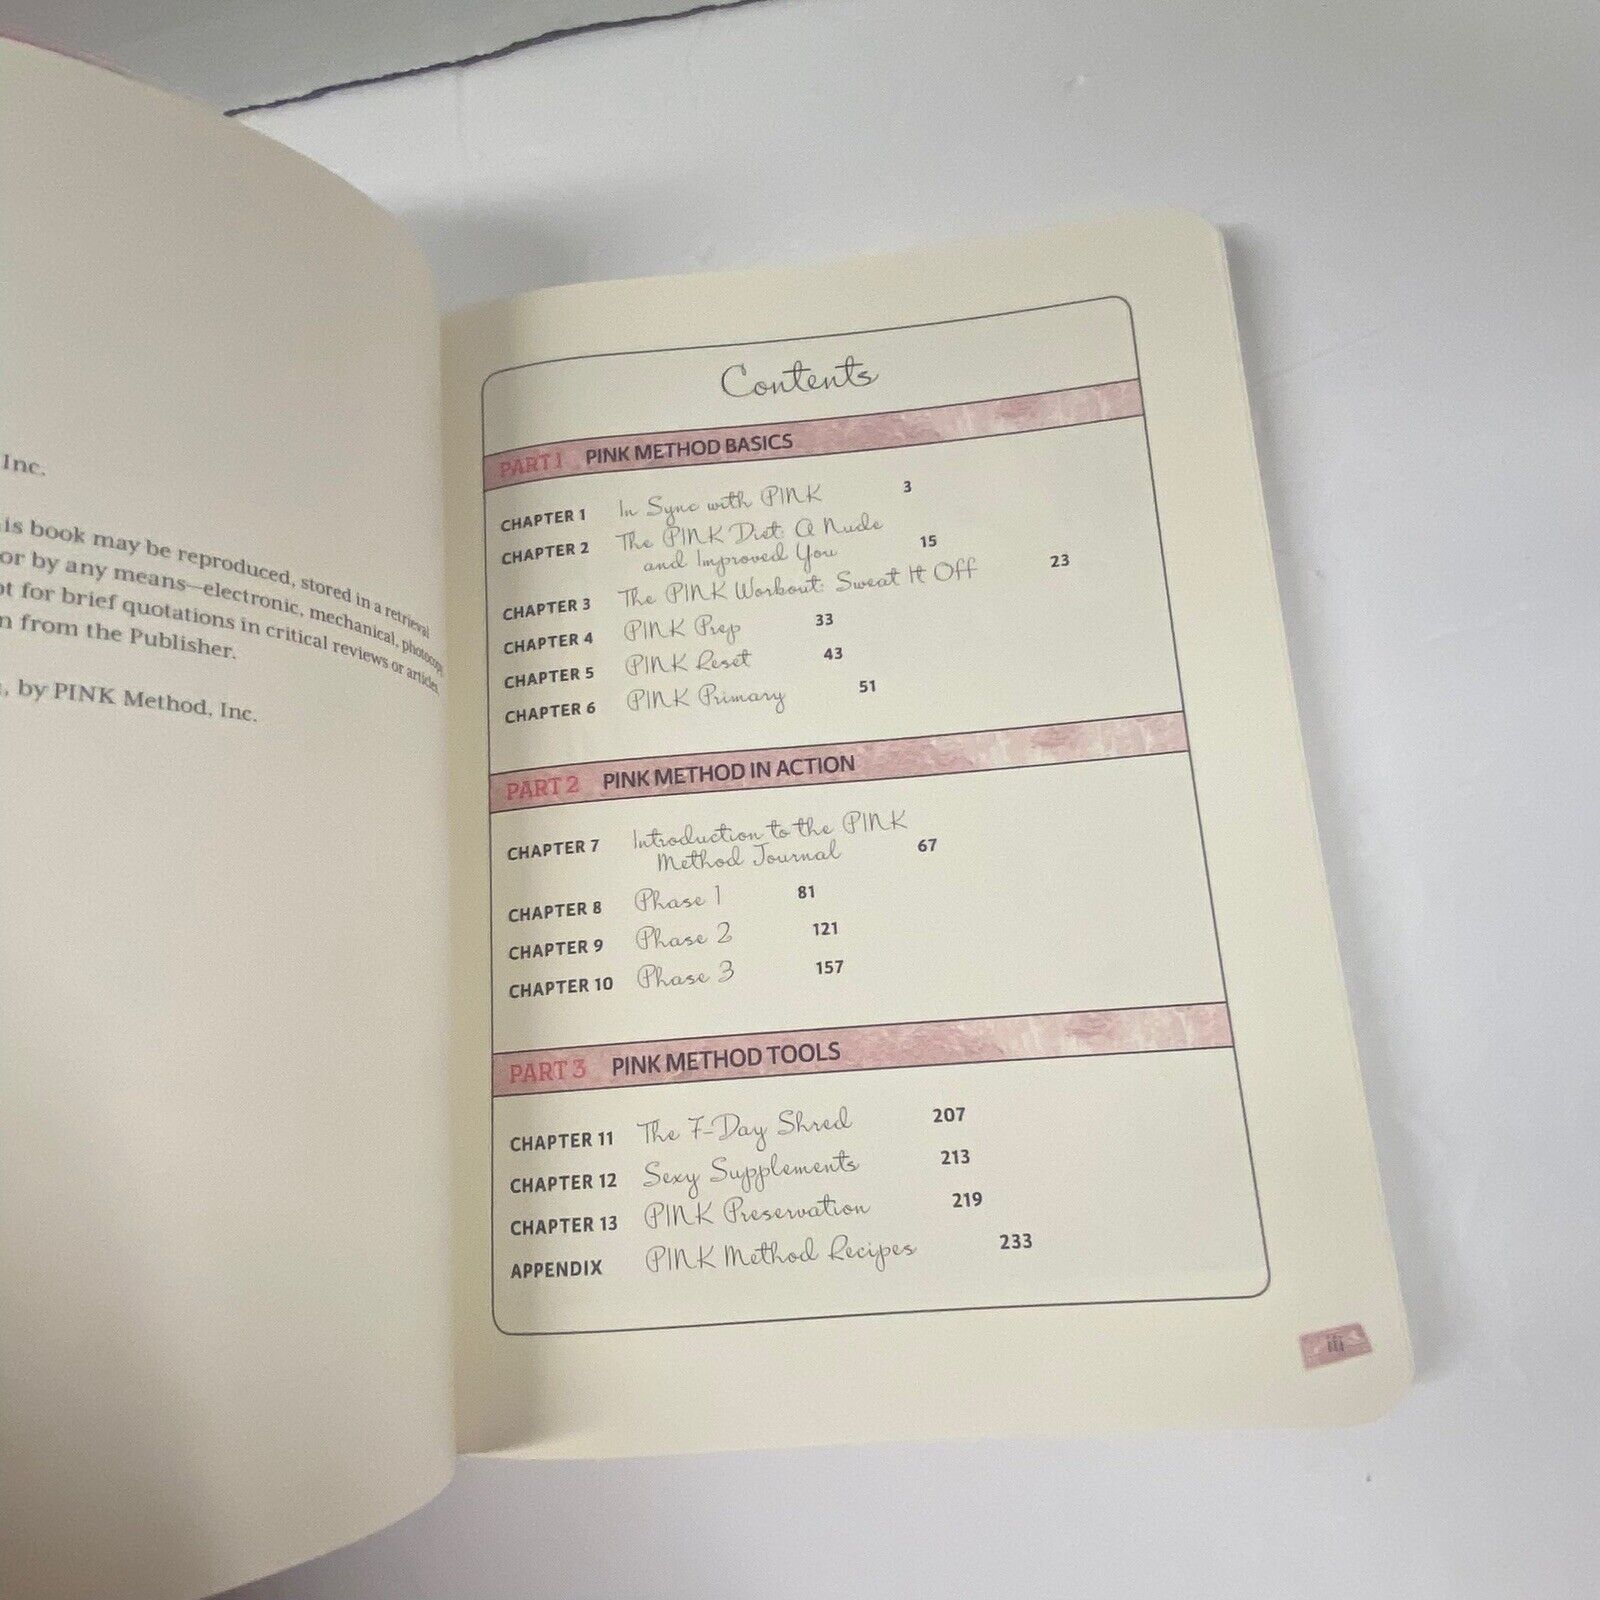 Inc.
is book may be reproduced, stored in a retrieval
or by any means—electronic, mechanical, photocopy
t for brief quotations in critical reviews or articles,
n from the Publisher.
, by PINK Method, Inc.
Contents
PART 1 PINK METHOD BASICS
CHAPTER 1 In Sync with PINK 3
CHAPTER 2 The PINK Diet: A Nude
and Improved You 15
CHAPTER 3 The PINK Workout: Sweat It Off 23
CHAPTER 4 PINK Prep 33
CHAPTER 5 PINK Reset 43
CHAPTER 6 PINK Primary 51
PART 2 PINK METHOD IN ACTION
CHAPTER 7 Introduction to the PINK
Method Journal 67
CHAPTER 8 Phase 1 81
CHAPTER 9 Phase 2 121
CHAPTER 10 Phase 3 157
PART 3 PINK METHOD TOOLS
CHAPTER 11 The 7-Day Shred 207
CHAPTER 12 Sexy Supplements 213
CHAPTER 13 PINK Preservation 219
APPENDIX PINK Method Recipes 233
iii